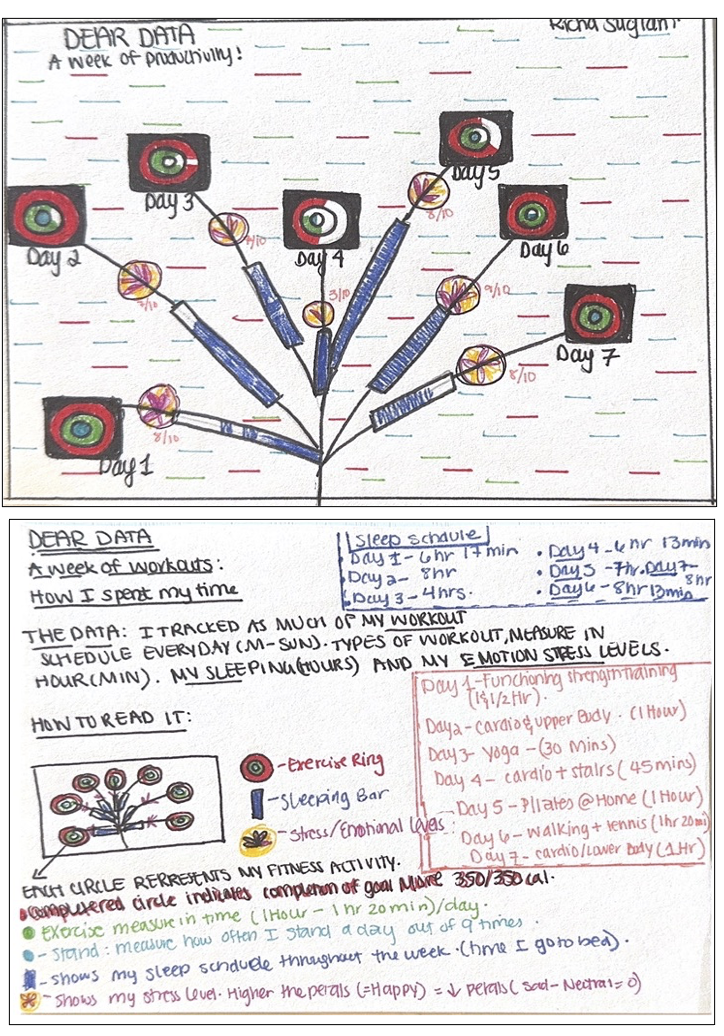 DEAR DATA
A week of productivity!
Richa Suglani
Day 5
Day 3
Day 4
Day 2
Day 6
Day 7
Day 1
8/10
7/10
3/10
9/10
8/10
8/10
DEAR DATA
A week of workouts:
How I spent my time
Sleep schdule
Day 1 - 6 hr 17 min
Day 2 - 8hr
Day 3 - 4hrs.
• Day 4 - 6 hr 13 min
• Day 5 - 7hr. Day 7- 8hr
• Day 6 - 8hr 13 min
THE DATA: I TRACKED AS MUCH OF MY WORKOUT
SCHEDULE EVERYDAY (M-SUN). TYPES OF WORKOUT, MEASURE IN
HOUR (MIN). MY SLEEPING (HOURS) AND MY EMOTION STRESS LEVELS.
HOW TO READ IT:
- Exercise Ring
- Sleeping Bar
- Stress/Emotional levels:
Day 1 - Functioning strength training
(1 & 1/2 Hr).
Day 2 - cardio & upper Body. (1 Hour)
Day 3 - Yoga - (30 Mins)
Day 4 - cardio + stairs (45 mins)
Day 5 - Pilates @ Home (1 Hour)
Day 6 - walking + tennis (1hr 20 min)
Day 7 - cardio/Lower Body (1 Hr)
EACH CIRCLE RERRESENTS MY FITNESS ACTIVITY.
circle indicates completion of goal Move 350/350 cal.
Exercise measure in time (1 Hour - 1 hr 20 min)/day.
- Stand: measure how often I stand a day out of 9 times.
- shows my sleep schdule throughout the week. (time I go to bed).
- Shows my stress level. Higher the petals (= Happy) = ↓ petals (Sad - Neutral = 0)